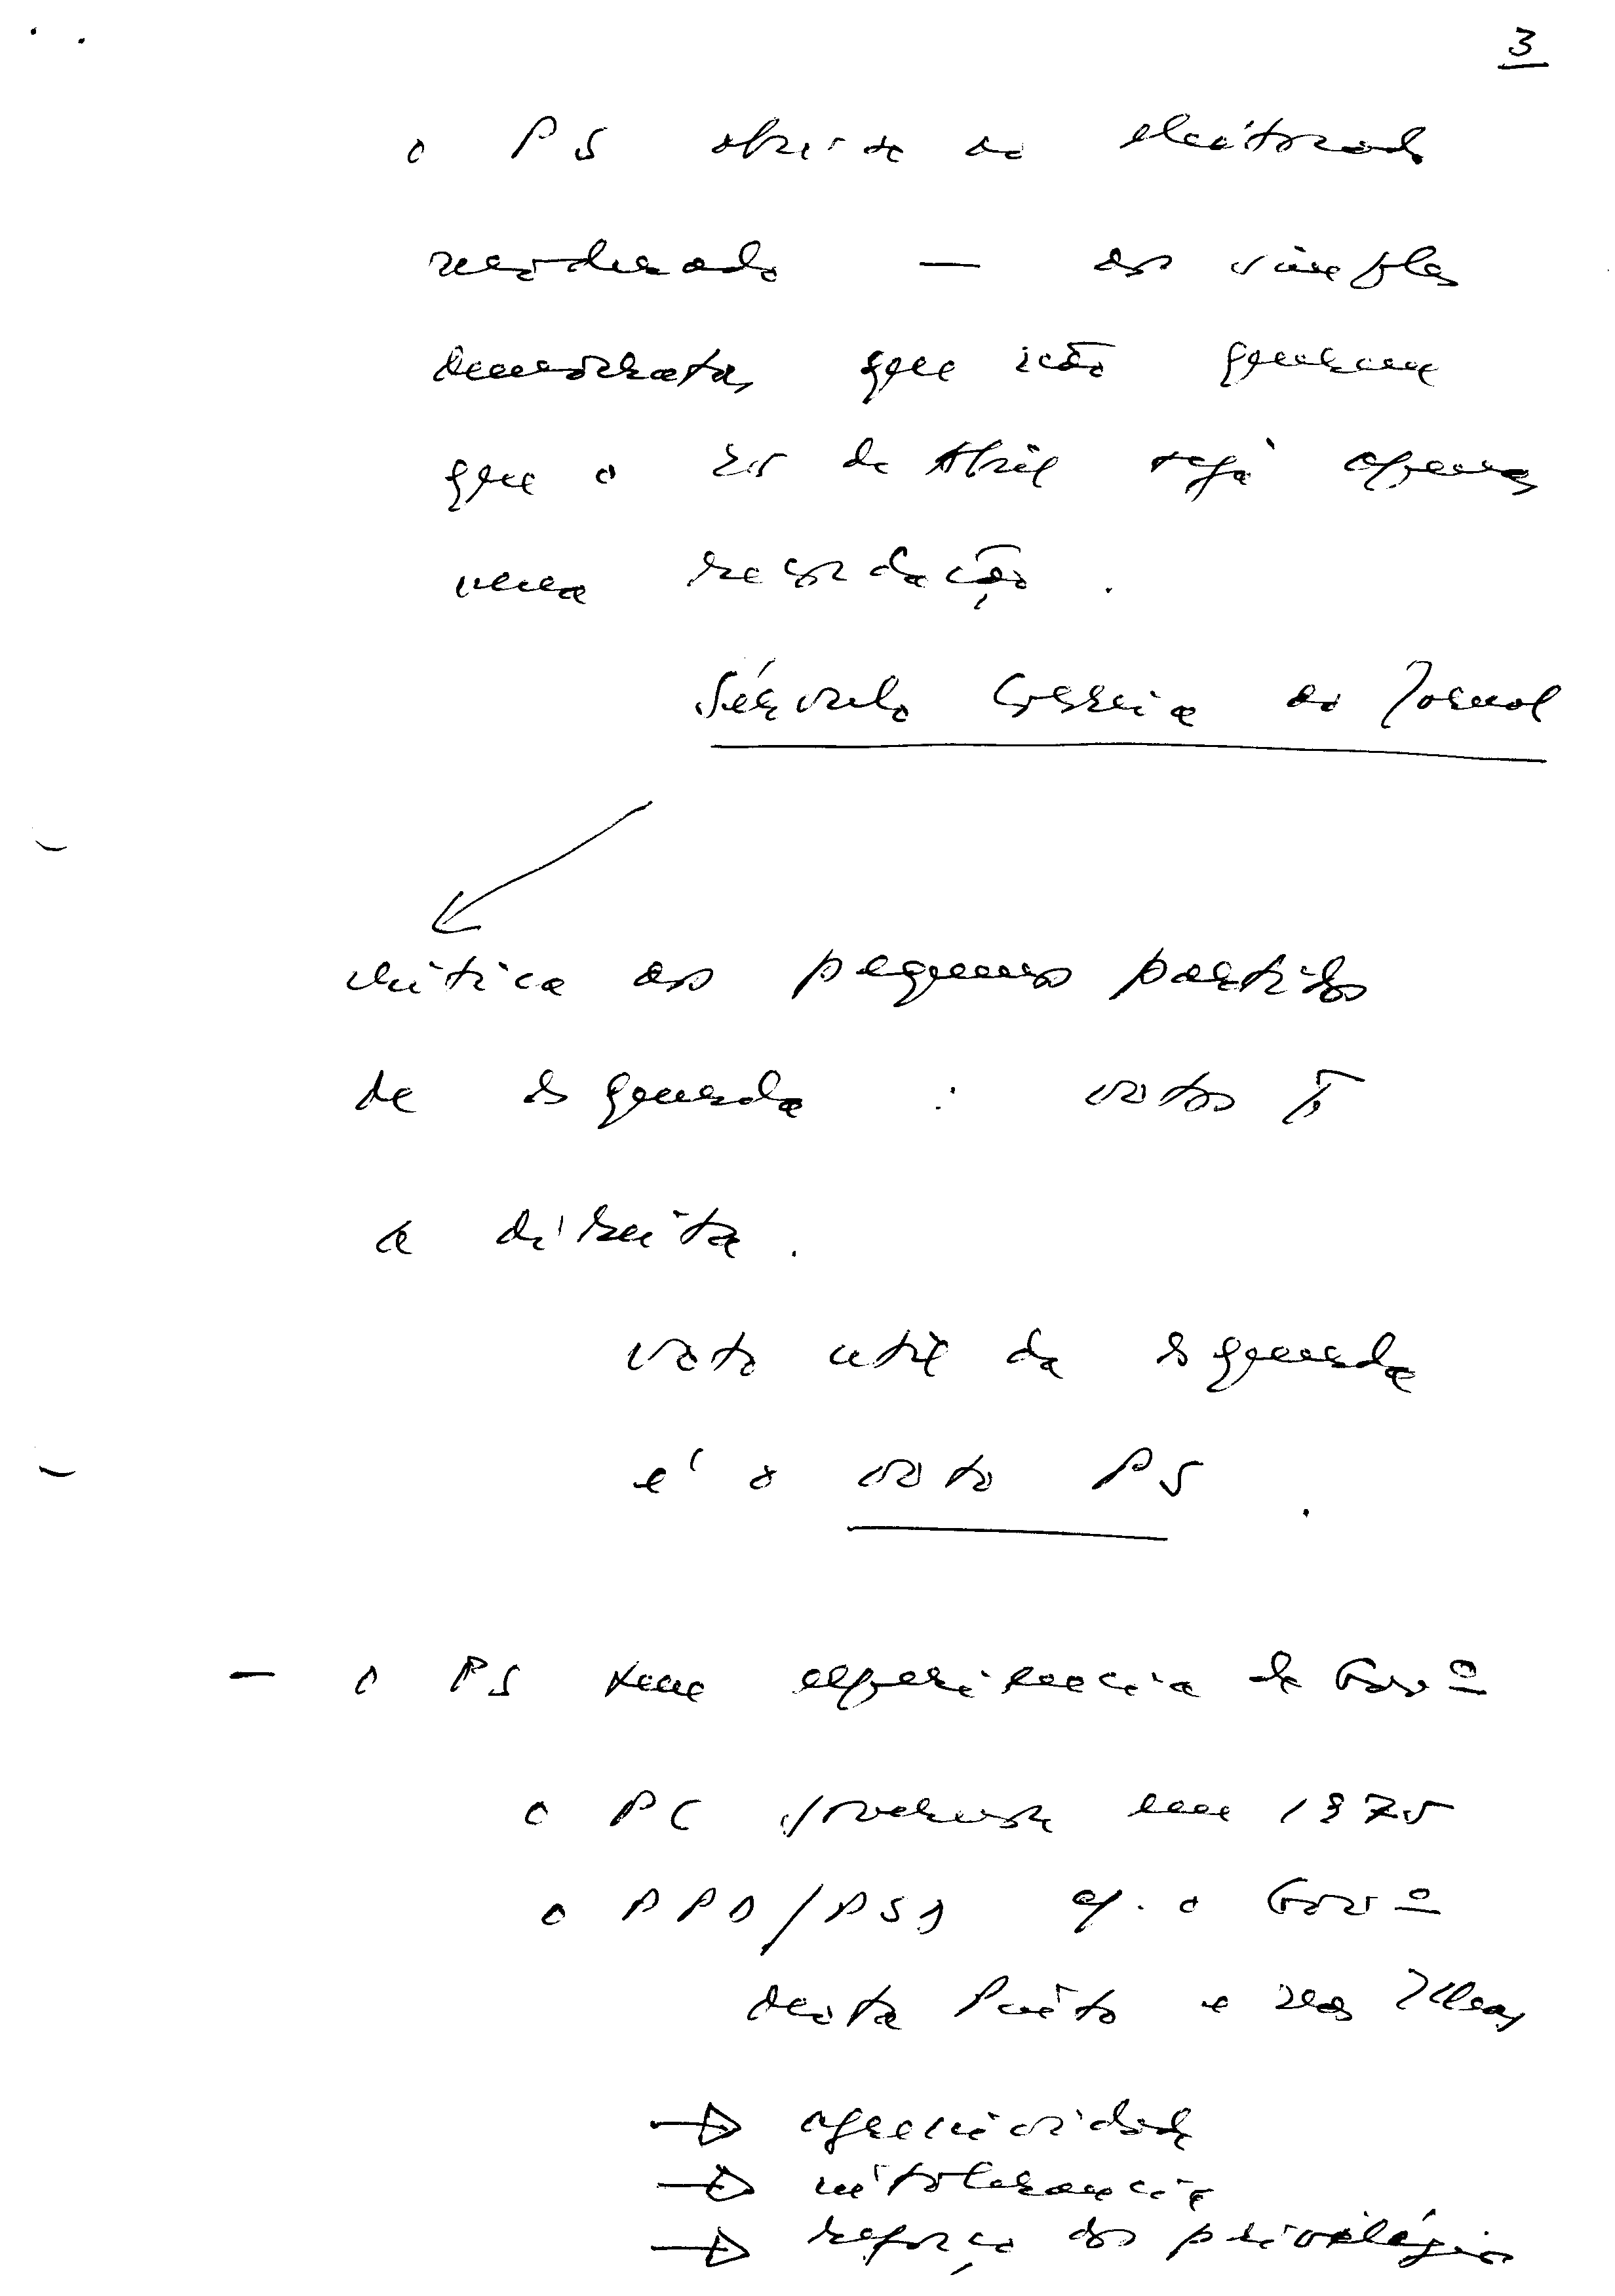 3
o PS abriu-se ao eleitorado
moderado — aos simples
democratas que não querem
que o 25 de Abril seja apenas
uma recordação.
Sérvulo Correia ao Jornal
crítica aos pequenos partidos
de esquerda : votos
a direita.
voto util da esquerda
e' o voto PS.
— o PS tem experiencia de Govº
o PC em 1975
o PPD/PSD o Govº
Mota Pinto e nas Ilhas
→ agressividade
→ intolerancia
→ reforço dos privilégios